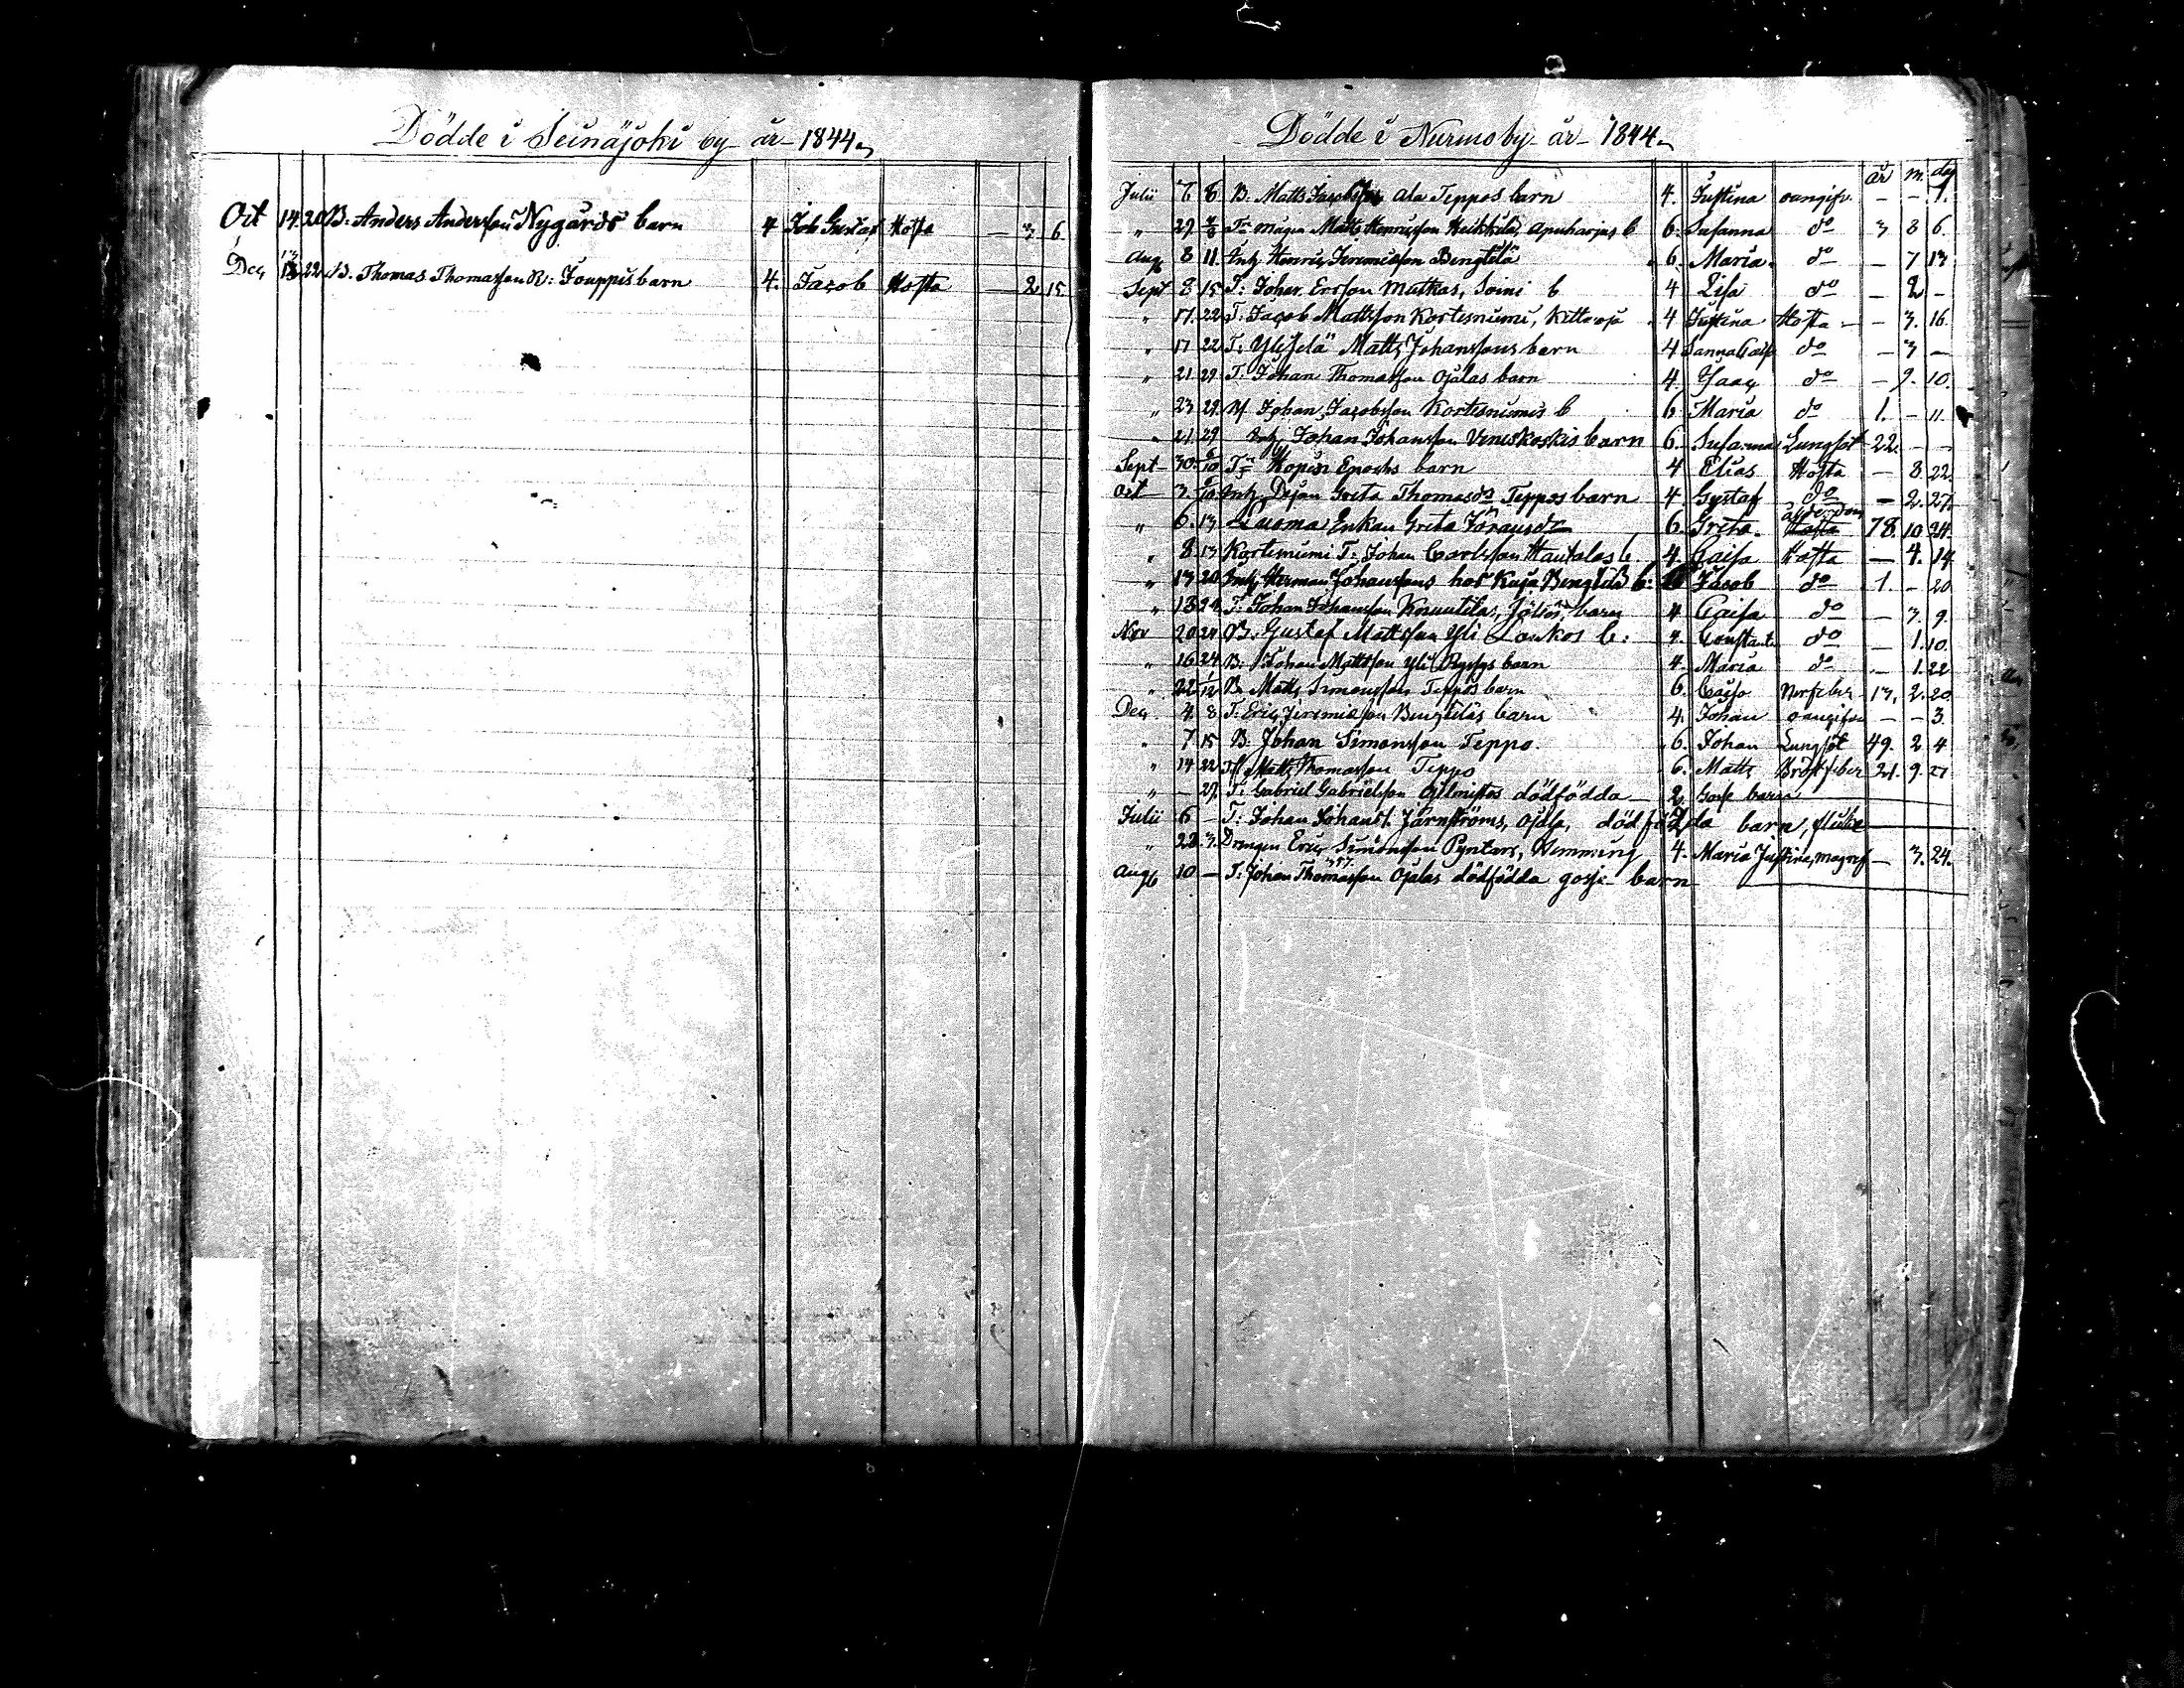 Dödde i Seinäjoki by år 1844
Oct 14 20 B. Anders Andersson Nygårds barn 4 Joh Gustaf Hosta – 3 6.
Dec 13 22 B. Thomas Thomasson R: Jouppis barn 4. Jacob Hosta – 2 15.
Dödde i Nurmo by år 1844
år m. dg
Julii 6 B. Matts Jacobsson Ala Teppos barn 4. Justina oangifv. – – 1.
" 27 Matts Henricsson Heikkilä, Apuharjus b 6. Susanna do 3 8 6.
Aug 8 11 Inh Henric Jeremiasson Bengtilä 6. Maria do – 7 13
Sept 8 15 T: Johan Ersson Matkas, Soini b 4 Lisa do – 2 –
" 17. 22 T. Jacob Mattsson Kortesniemi, 4 Justina Hosta – 3. 16.
" 17 22 T: Matts Johanssons barn 4 do – 3 –
" 21 29 T. Johan Thomasson Ojalas barn 4. Isaac do – 10.
" 23 29. Johan Jacobsson Kortesniemis b 6 Maria do 1. – 11
" 21. 29 Inh Johan Johansson barn 6. Susanna Lungsot 22. – –
Sept 30. 6/10 barn 4 Elias Hosta – 8 22.
Oct 3 6/10 Inh. Greta Thomasdr Teppos barn 4. Gustaf do – 2. 27.
" 6. 13 Luoma Enkan Greta 6. Greta. ålderdom Hosta 78. 10 24.
" 8 13 Kortesniemi T. Johan Carlsson Hautalas b 4. Caisa Hosta – 4. 14
" 13 20 Inh Herman Johanssons hos b: Jacob do 1. – 20
" 18 24 T. Johan Johansson Knuutila, barn 4 Caisa do – 3. 9.
Nov 20 24 B. Gustaf Mattsson Yli Laukos b: 4. do – 1. 10.
" 16 24 B. Johan Mattsson Yli barn 4. Maria do – 1. 22
" 22 1/12 B. Matts Simonsson Teppos barn 6. Caisa 13. 2. 20.
Dec 4. 8 T. Eric Jeremiasson Bengtiläs barn 4. Johan oangifven – – 3.
" 7 15 B. Johan Simonsson Teppo. 6. Johan Lungsot 49. 2 4
" 14 22 Matts Thomasson Teppo 6. Matts Bröstfeber 9. 27
" – 29. T. Gabriel Gabrielsson dödfödda 2 Gosse barn
Julii 6 – T: Johan Johanss. Järnströms, Ojala, dödfödda barn, flicka
" 22. 3. Drengen Eric Simonsson Pyntars, 4. Maria Justina, – 3. 24.
Aug 10 – T. Johan Thomasson Ojalas dödfödda gosse barn